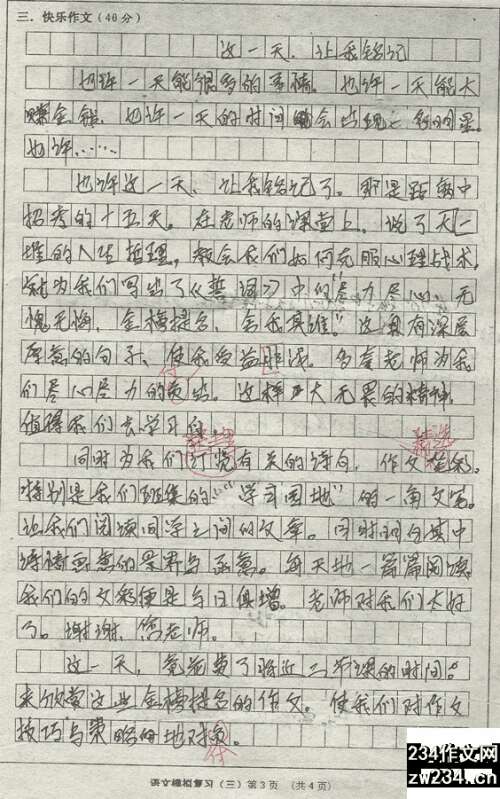 三．快乐作文（40分）
这一天，让我铭记
也许一天能很多的事情。也许一天能大
赚金钱，也许一天的时间会出现一颗明星。
也许……
也许这一天，让我铭记了。那是距离中
招考的十五天。在老师的课堂上，说了大一
堆的人生哲理，教会我们如何克服心理战术，
就为我们写出了《誓词》中的“尽力尽心，无
愧无悔，金榜提名，舍我其谁。”这具有深层
厚意的句子，使我受益匪浅。多拿老师为我
们尽心尽力的付出。这样大无畏的精神，
值得我们去学习
同时为我们有关的诗句，作文精选
特别是我们班集的“学习园地”的一角文字。
让我们阅读同学之间的文章。同时明白其中
诗情画意的境界与涵意。每天地一篇篇阅读
我们的文彩便是与日俱增。老师对我们太好
了。谢谢，您老师。
这一天，竟花费了将近二节课的时间。
来欣赏这些金榜提名的作文。使我们对作文
技巧与策略的地对付。
语文模拟复习（三）第3页 （共4页）
234作文网
zw234.cn